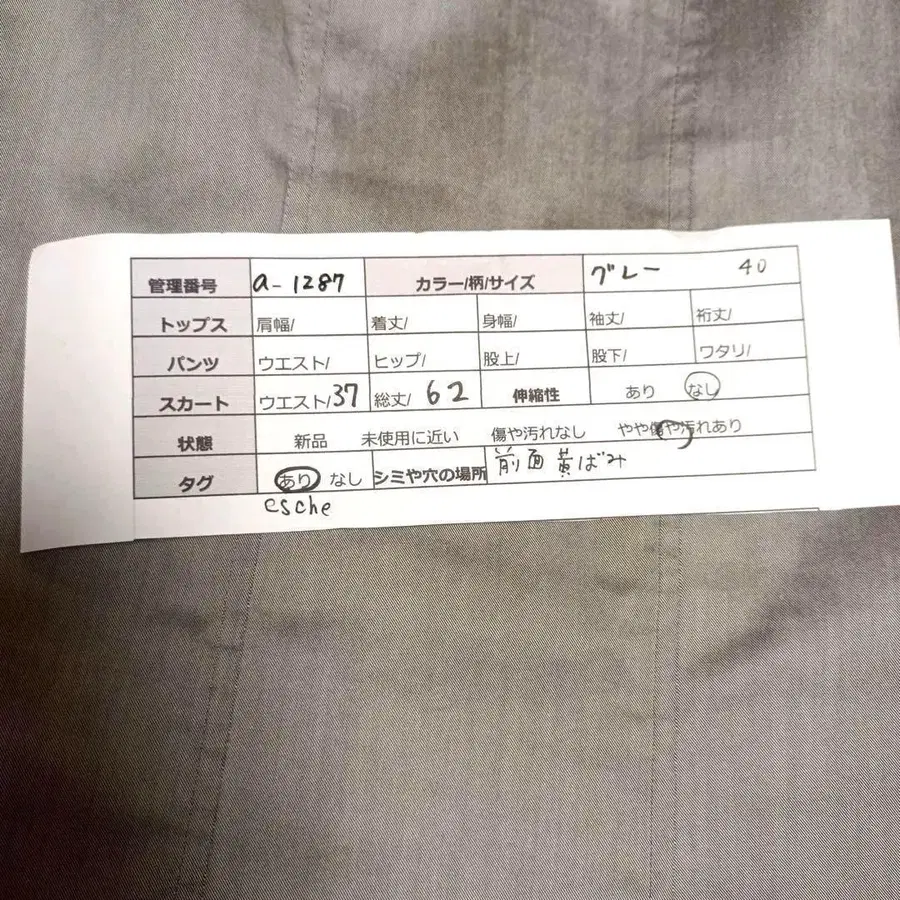 管理番号 a-1287 カラー/柄/サイズ グレー 40
トップス 肩幅/ 着丈/ 身幅/ 袖丈/ 裄丈/
パンツ ウエスト/ ヒップ/ 股上/ 股下/ ワタリ/
スカート ウエスト/37 総丈/62 伸縮性 あり なし
状態 新品 未使用に近い 傷や汚れなし やや傷や汚れあり
タグ あり なし シミや穴の場所 前面黄ばみ
esche